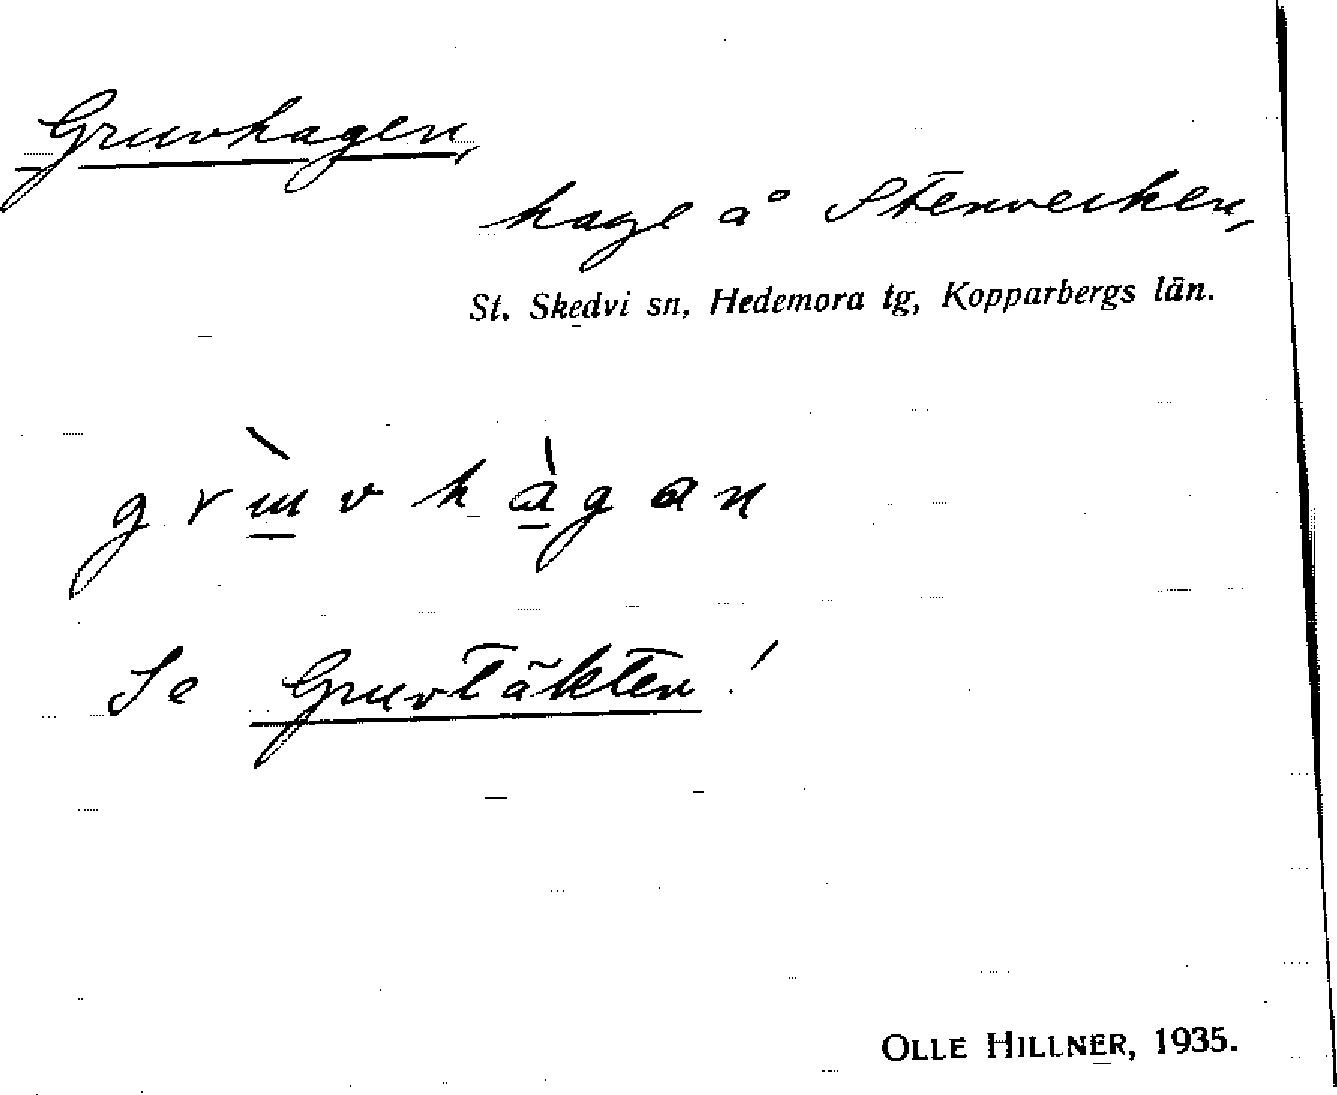 Gruvhagen,
hage å Stenvecken,
St. Skedvi sn, Hedemora tg, Kopparbergs län.
grùvhàgan
Se Gruvtäkten!
OLLE HILLNER, 1935.